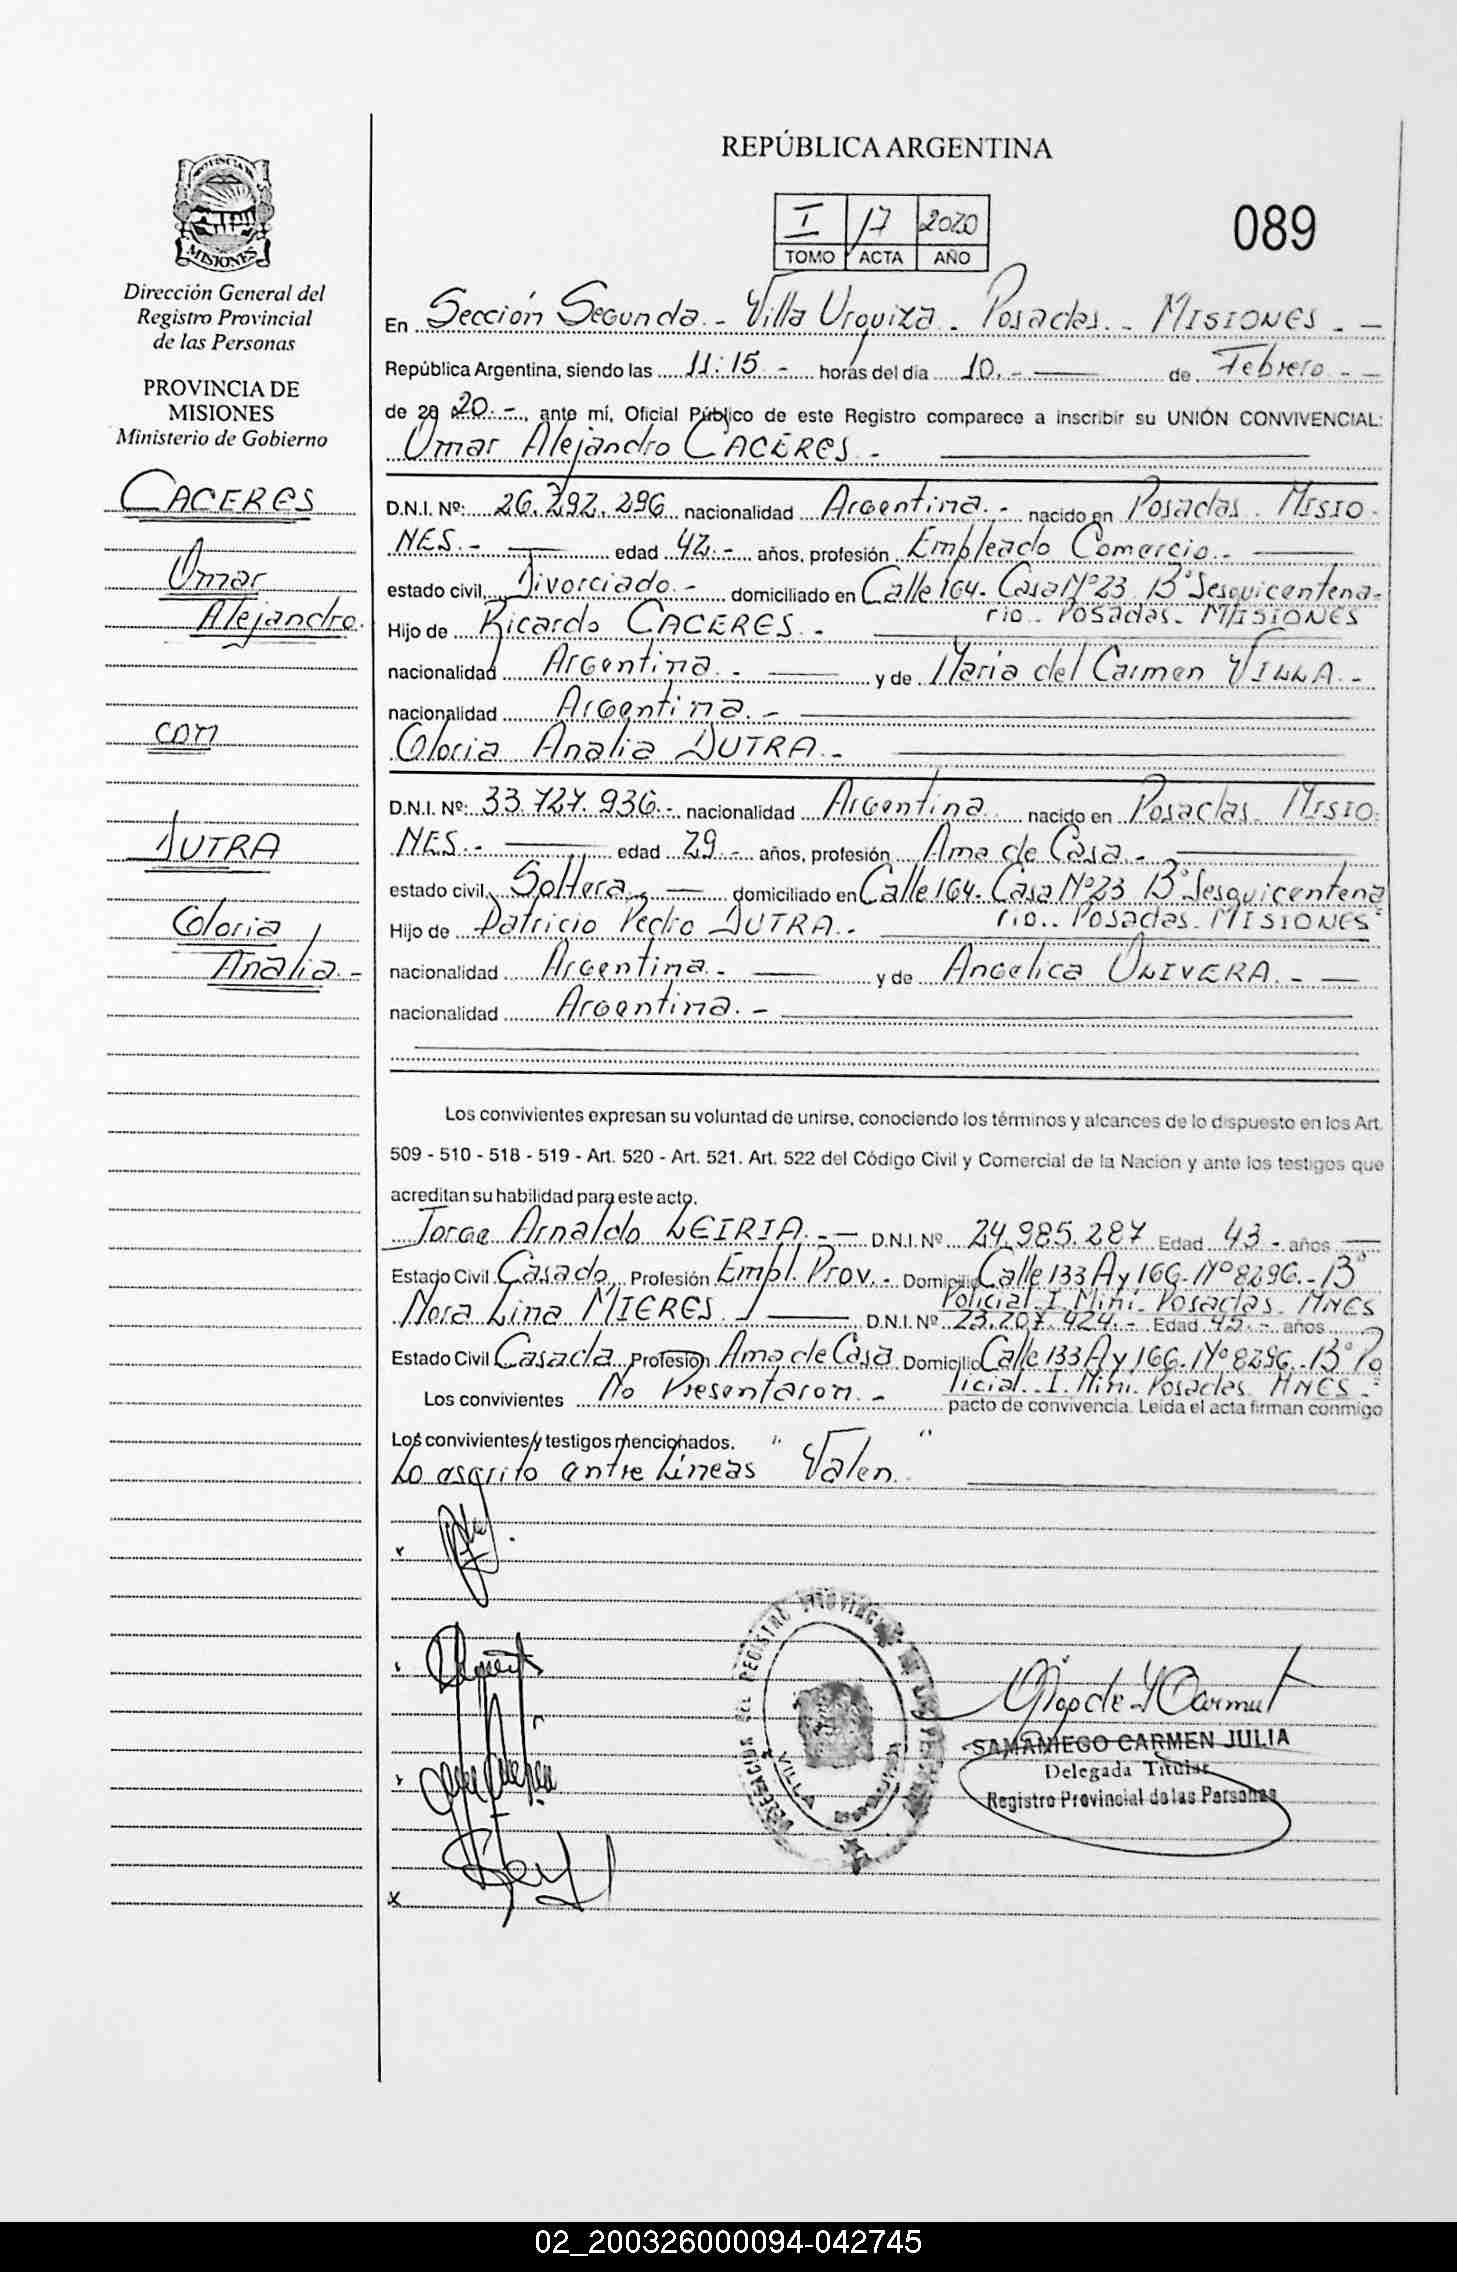 REPÚBLICA ARGENTINA
I 17 2020
TOMO ACTA AÑO
089
PROVINCIA DE
MISIONES
Dirección General del
Registro Provincial
de las Personas
PROVINCIA DE
MISIONES
Ministerio de Gobierno
CACERES
Omar
Alejandro.
con
DUTRA
Gloria
Analia.-
En Sección Segunda.- Villa Urquiza. Posadas.- MISIONES.- —
República Argentina, siendo las 11:15.- horas del día 10.- — de Febrero.- -
de 20 20.-, ante mí, Oficial Público de este Registro comparece a inscribir su UNIÓN CONVIVENCIAL:
Omar Alejandro CACERES.-
D.N.I. Nº: 26.792.296 nacionalidad Argentina.- nacido en Posadas. MISIO-
NES.- — edad 42.- años, profesión Empleado Comercio.-
estado civil Divorciado.- domiciliado en Calle 164. Casa Nº 23 Bº Sesquicentena-
rio.- Posadas- MISIONES
Hijo de Ricardo CACERES.-
nacionalidad Argentina.- — y de Maria del Carmen VILLA.-
nacionalidad Argentina.-
Gloria Analia DUTRA.-
D.N.I. Nº: 33.727.936.- nacionalidad Argentina nacido en Posadas. MISIO-
NES.- — edad 29.- años, profesión Ama de Casa.-
estado civil Soltera. — domiciliado en Calle 164. Casa Nº 23 Bº Sesquicentena
rio.. Posadas. MISIONES
Hijo de Patricio Pedro DUTRA.-
nacionalidad Argentina.- — y de Angelica OLIVERA.- —
nacionalidad Argentina.-
Los convivientes expresan su voluntad de unirse, conociendo los términos y alcances de lo dispuesto en los Art.
509 - 510 - 518 - 519 - Art. 520 - Art. 521. Art. 522 del Código Civil y Comercial de la Nación y ante los testigos que
acreditan su habilidad para este acto.
Jorge Arnaldo LEIRIA.- — D.N.I. Nº 24.985.287 Edad 43 - años —
Estado Civil Casado Profesión Empl. Prov.- Domicilio Calle 133 A y 166. Nº 8296.- Bº
Policial I. Mini. Posadas. MNES
Nora Lina MIERES. — D.N.I. Nº 23.207.424.- Edad 45.- años
Estado Civil Casada Profesión Ama de Casa Domicilio Calle 133 A y 166. Nº 8296.- Bº Po
licial. I. Mini. Posadas MNES.-
Los convivientes No Presentaron.- pacto de convivencia. Leída el acta firman conmigo
Los convivientes y testigos mencionados.
Lo escrito entre Lineas "Valen"
DELEGACION DEL REGISTRO PROVINCIAL DE LAS PERSONAS
VILLA
SAMANIEGO CARMEN JULIA
Delegada Titular
Registro Provincial de las Personas
02_200326000094-042745